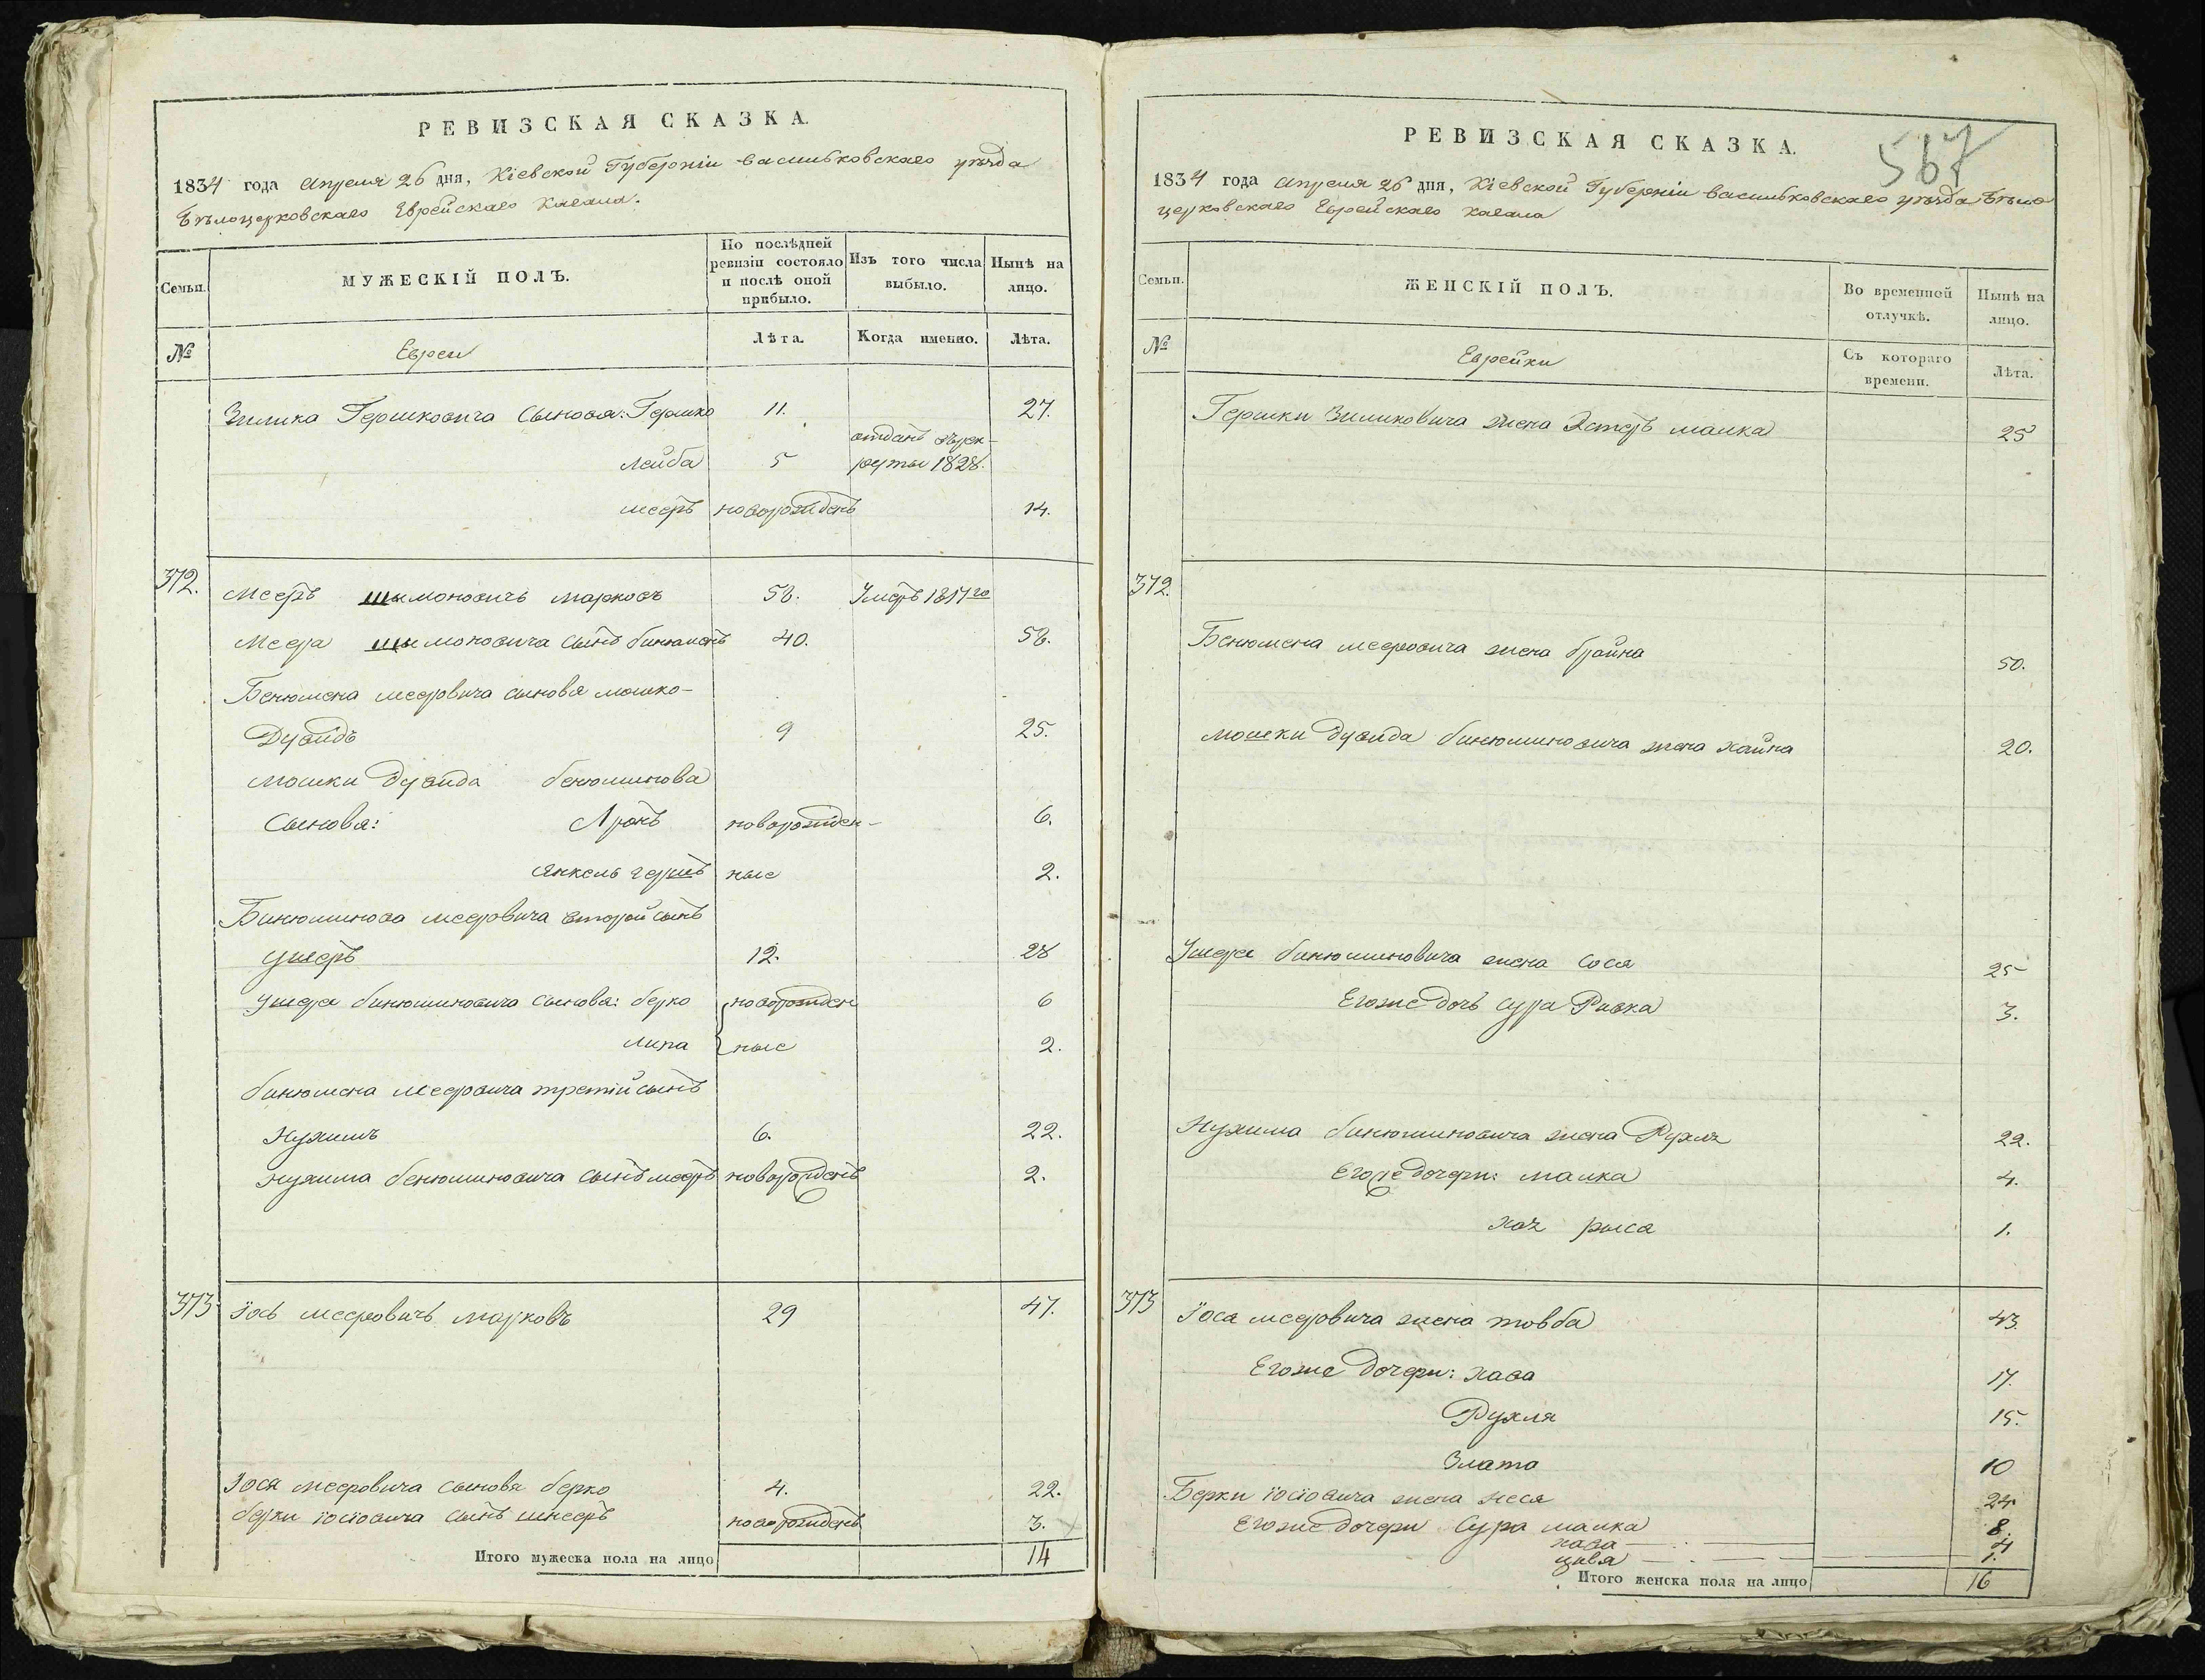 РЕВИЗСКАЯ СКАЗКА.
1834 года Апреля 26 дня, Кіевской Губерніи васильковскаго уѣзда
Бѣлоцерковскаго Еврейскаго Кагала.
Семьи.
МУЖЕСКІЙ ПОЛЪ.
По послѣдней ревизіи состояло и послѣ оной прибыло.
Изъ того числа выбыло.
Нынѣ на лицо.
№
Евреи
Лѣта.
Когда именно.
Лѣта.
Зилика Гершковича Сыновя: Гершко 11. 27.
лейба 5 отданъ въ рек-
руты 1828.
мееръ новорожденъ 14.
372. Мееръ шмоновичъ марковъ 58. Умеръ 1817 го
Меера шмоновича Сынъ бинюменъ 40. 58.
Бенюмена мееровича сыновя мошко-
Дувидъ 9 25.
мошки Дувида бенюминова
Сыновя: Аронъ новорожден- 6.
янкель гершъ ные 2.
Бинюминова мееровича второй сынъ
ушеръ 12. 28
ушера бинюминовича сыновя: берко новорожден 6
липа ные 2.
бинюмена мееровича третій сынъ
Нухимъ 6. 22.
нухима бенюминовича сынъ мееръ новорожденъ 2.
373 Іось мееровичъ марковъ 29 47.
Іося мееровича сыновя берко 4. 22.
берки іосіовича сынъ шнееръ новорожденъ 3.
Итого мужеска пола на лицо 14
РЕВИЗСКАЯ СКАЗКА.
567
1834 года Апреля 26 дня, Кіевской Губерніи васильковскаго уѣзда Бѣло
церковскаго Еврейскаго кагала
Семьи.
ЖЕНСКІЙ ПОЛЪ.
Во временной отлучкѣ.
Нынѣ на лицо.
№
Еврейки
Съ котораго времени.
Лѣта.
Гершки Зиликовича жена Эстеръ малка 25
372.
Бенюмена мееровича жена брайна 50.
мошки Дувида бинюминовича жена хайка 20.
Ушера бинюминовича жена сося 25
Егоже дочь сура Ривка 3.
Нухима бинюминовича жена Рухля 22.
Егоже дочери: малка 4.
хая рыся 1.
373 Іося мееровича жена товба 43.
Егоже дочери: хава 17.
Рухля 15.
Злата 10
Берки іосіовича жена неся 24
Егоже дочери Сура малка 8.
хава 4
цивя 1.
Итого женска пола на лицо 16